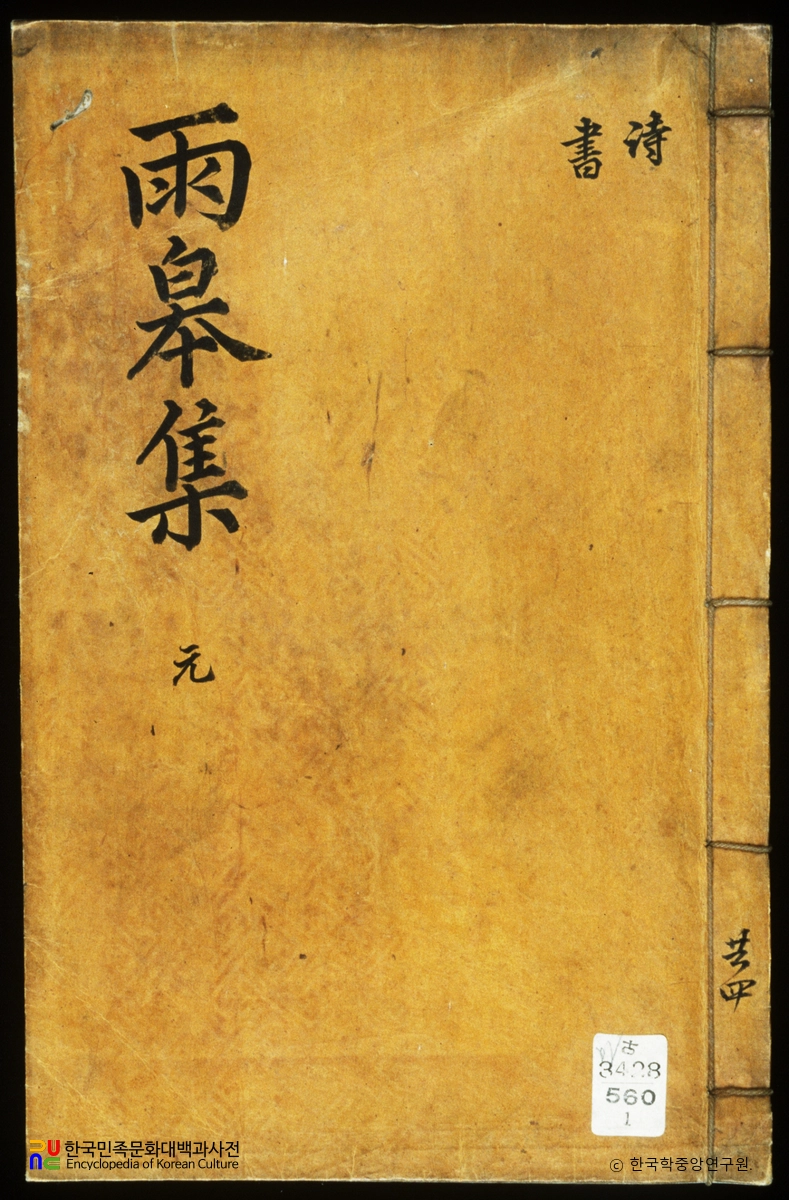 雨皐集
元
詩
書
共四
古
3428
560
1
한국민족문화대백과사전
Encyclopedia of Korean Culture
ⓒ 한국학중앙연구원